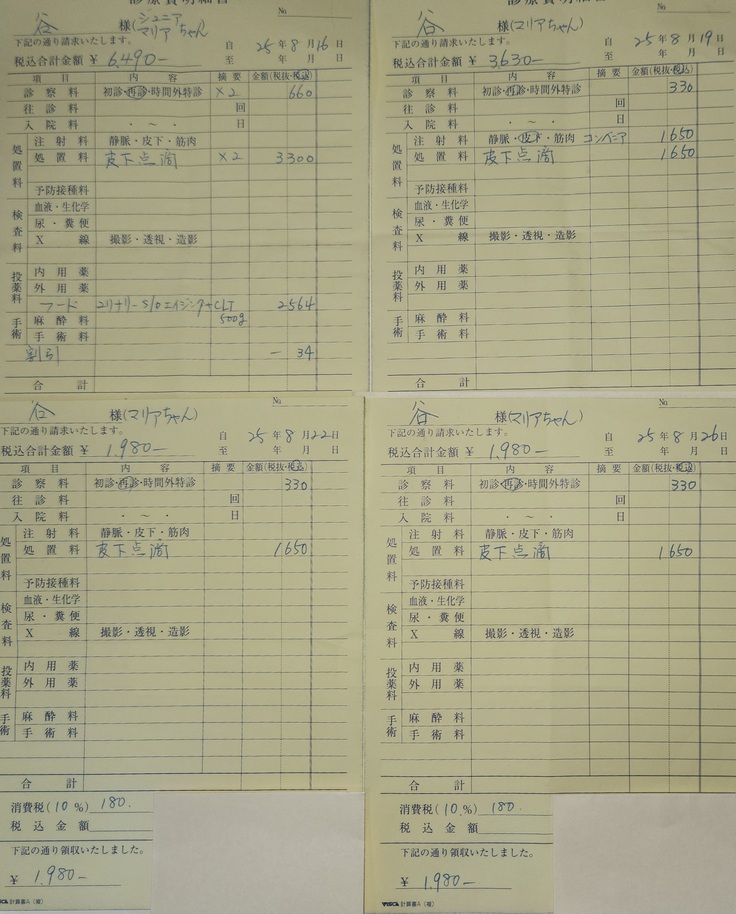 診療費明細書
No.
谷 様(ジュニア マリアちゃん)
下記の通り請求いたします。
自 25年8月16日
税込合計金額 ¥ 6,490-
至 年 月 日
項目 内容 摘要 金額(税抜・税込)
診察料 初診・再診・時間外特診 ×2 660
往診料 回
入院料 ・ ～ ・ 日
処置料 注射料 静脈・皮下・筋肉
処置料 皮下点滴 ×2 3300
予防接種料
検査料 血液・生化学
尿・糞便
X線 撮影・透視・造影
投薬料 内用薬
外用薬
フード ユリナリーS/Oエイジング+CLT 500g 2564
手術 麻酔料
手術料
割引 - 34
合計
谷 様(マリアちゃん)
下記の通り請求いたします。
自 25年8月19日
税込合計金額 ¥ 3,630-
至 年 月 日
項目 内容 摘要 金額(税抜・税込)
診察料 初診・再診・時間外特診 330
往診料 回
入院料 ・ ～ ・ 日
処置料 注射料 静脈・皮下・筋肉 コンベニア 1650
処置料 皮下点滴 1650
予防接種料
検査料 血液・生化学
尿・糞便
X線 撮影・透視・造影
投薬料 内用薬
外用薬
手術 麻酔料
手術料
合計
No.
谷 様(マリアちゃん)
下記の通り請求いたします。
自 25年8月22日
税込合計金額 ¥ 1,980-
至 年 月 日
項目 内容 摘要 金額(税抜・税込)
診察料 初診・再診・時間外特診 330
往診料 回
入院料 ・ ～ ・ 日
処置料 注射料 静脈・皮下・筋肉
処置料 皮下点滴 1650
予防接種料
検査料 血液・生化学
尿・糞便
X線 撮影・透視・造影
投薬料 内用薬
外用薬
手術 麻酔料
手術料
合計
消費税(10%) 180.
税込金額
下記の通り領収いたしました。
¥ 1,980-
計算書A(複)
No.
谷 様(マリアちゃん)
下記の通り請求いたします。
自 25年8月26日
税込合計金額 ¥ 1,980-
至 年 月 日
項目 内容 摘要 金額(税抜・税込)
診察料 初診・再診・時間外特診 330
往診料 回
入院料 ・ ～ ・ 日
処置料 注射料 静脈・皮下・筋肉
処置料 皮下点滴 1650
予防接種料
検査料 血液・生化学
尿・糞便
X線 撮影・透視・造影
投薬料 内用薬
外用薬
手術 麻酔料
手術料
合計
消費税(10%) 180.
税込金額
下記の通り領収いたしました。
¥ 1,980-
計算書A(複)